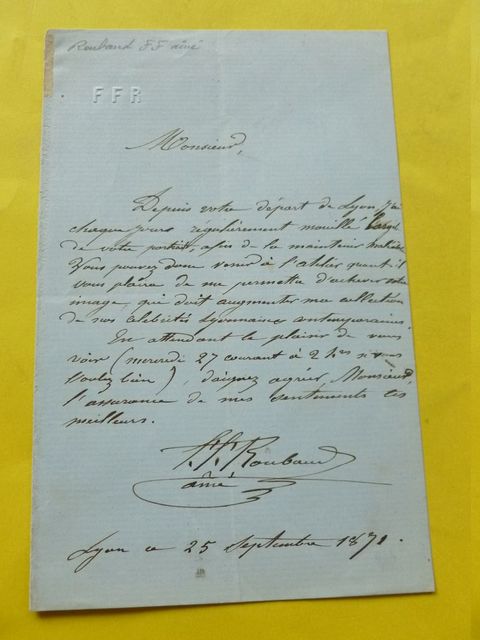 Roubaud FF aîné
FFR
Monsieur,
Depuis votre départ de Lyon j'ai
chaque jours régulièrement mouillé l'argile
de votre portrait, afin de la maintenir
Vous pouvez donc venir à l'atelier quant il
vous plaira de me permettre d'achever votre
image, qui doit augmenter ma collection
de nos célébrités Lyonnaises contemporaines.
En attendant le plaisir de vous
voir (mercredi 27 courant à 2 hres si vous
voulez bien), daignez agréer, Monsieur,
l'assurance de mes sentiments les
meilleurs.
F. F. Roubaud
aîné
Lyon ce 25 Septembre 1871.